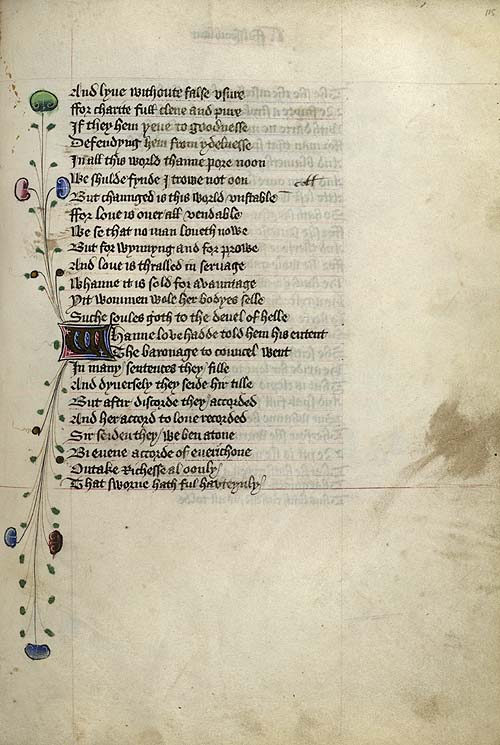 And lyue withoute false vsure
ffor charite full clene and pure
If they hem yeue to goodnesse
Defendyng hem from ydelnesse
In all this world thanne pore noon
We shulde fynde I trowe not oon
But chaunged is this world vnstable
ffor loue is ouer all vendable
We se that no man loueth nowe
But for wynnyng and for prowe
And loue is thralled in seruage
Whanne it is sold for avauntage
Yit wommen wole her bodyes selle
Suche soules goth to the deuel of helle
Whanne love hadde told hem his entent
The baronage to councel went
In many sentences they fille
And dyuersely they seide hir tille
But after discorde they accorded
And her accord to loue recorded
Sir seiden they we ben atone
Bi euene accorde of euerichone
Outake Richesse al oonly
That sworne hath ful hauteynly